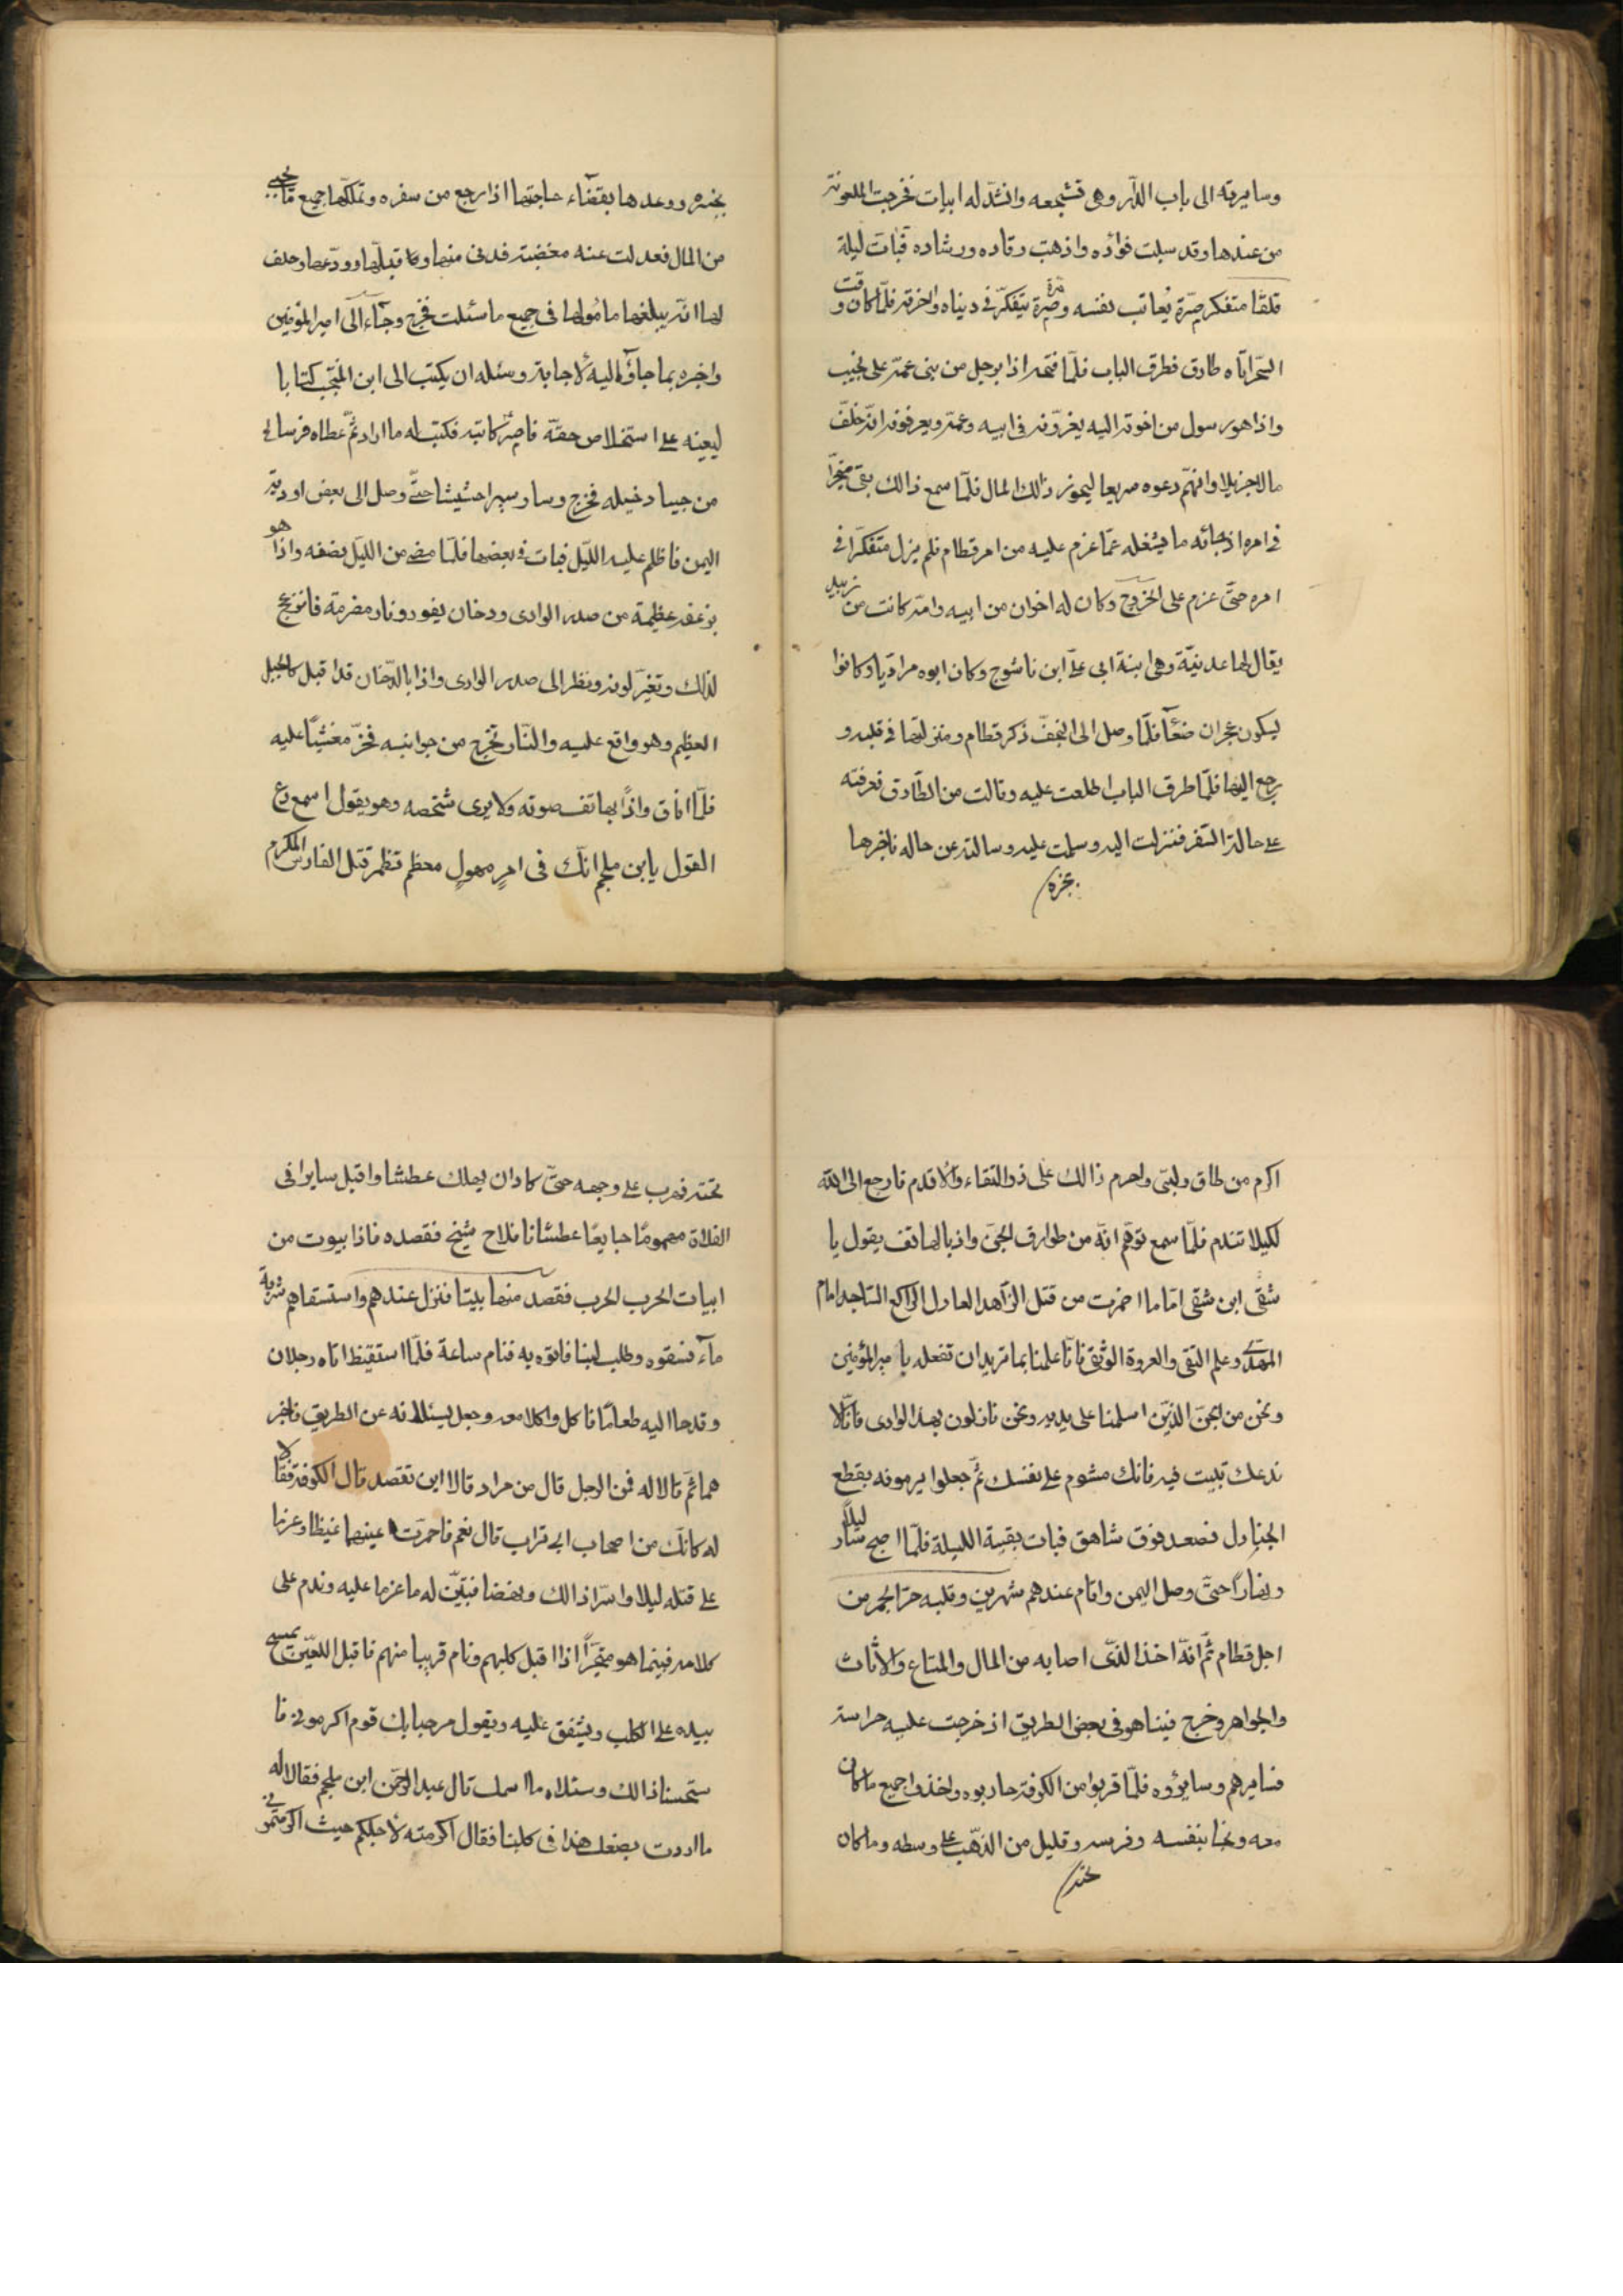 وسايرته الى باب الدّار وهى تشجعه وانشد له ابيات فخرجت الملعونة
من عندها وقد سبلت فوأده واذهبت رقاده ورشاده فبات ليلة
قلقًا متفكر مرّة يُعاتب نفسه ومرّة يتفكّر فى ديناه واخرته فلمّا كان وقت
السّحر اتاه طارق فطرق الباب فلمّا فتحه اذا برجل من بنى عمّه على نجيب
واذا هو رسول من اخوته اليه يعزّونه فى ابيه وعمّه ويعرفونه انّه خلّف
مالا جزيلا وانهّم دعوه سريعا ليحوز ذالك المال فلمّا سمع ذالك بقى متحيّرا
فى امره اذ جائه ما يشغله عمّا عزم عليه من امر قطام فلم يزل متفكّرا فى
امره حتّى عزم على الخروج وكان له اخوان من ابيه وامّه كانت من زبيد
يقال لها عدنيّة وهى ابنة ابى علّى ابن ناشوج وكان ابوه مراديّا وكانوا
ليكون نجران صنعآ فلمّا وصل الى النجف ذكر قطام ومنزلتها فى قلبه و
رجع اليها فلمّا طرق الباب اطلعت عليه وقالت من الطّارق فعرفته
على حالة السّفر فنزلت اليه وسلمت عليه وسالته عن حاله فاخبرها
بخبره
بخبره ووعدها بقضآء حاجتها اذا رجع من سفره وتملّكها جميع ما يجئ
من المال فعدلت عنه مغضبة فدنى منها وقبلّها وودّعها وحلف
لها انّه يبلغها مامُولها فى جميع ما سئلت فخرج وجآء الى امير المؤمنين
واخبره بما جاؤا اليه لاجابة وسئله ان يكتب الى ابن المنتجب كتابا
ليعينه على استخلاص حقّه فامر كاتبه فكتب له ما اراد ثمّ عطاه فرسا
من جياد خيله فخرج وسار سيرا حثيثا حتّى وصل الى بعض اودية
اليمن فاظلم عليه الليّل فبات فى بعضها فلمّا مضى من الليّل نصفه واذا هو
بزعقة عظيمة من صدر الوادى ودخان يفور ونار مضرمة فانزعج
لذالك وتغيّر لونه ونظر الى صدر الوادى واذا بالدّخان قد اقبل كالجبل
العظيم وهو واقع عليه والنّار تخرج من جوانبه فخرّ مغشيًا عليه
فلمّا افاق واذًا بهاتف صوته ولا يرى شخصه وهو يقول اسمع رع
القول يابن ملجم انّك فى امرٍ مهولٍ معظم تظمر قتل الفارس المكرم
اكرم من طاق ولبّى واحرم ذالك على ذو التقاء والاقدم فارجع الى الله
لكيلا تندم فلمّا سمع توهّم انّه من طوارق الجنّ واذ بالهاتف يقول يا
شقى ابن شقى امّا ما اضمرت من قتل الزّاهد العادل الراكع السّاجد امام
الهدى وعلم التقى والعروة الوثقى فانّا علمنا بما تريد ان تفعله بامير المؤمنين
ونحن من الجنّ الذّين اسلمنا على يديه ونحن نازلون بهذا الوادى فانّا لا
ندعك تبيت فيه فانك مشوم على نفسك ثمّ جعلوا يرمونه بقطع
الجنادل فصعد فوق شاهق فبات بقيّة الليلة فلمّا اصبح سار ليلاً
ونهارًا حتّى وصل اليمن واقام عندهم شهرين وقلبه حرّ الجمر من
اجل قطام ثمّ انهّ اخذ الذّى اصابه من المال والمتاع والاثاث
والجواهر وخرج فبينا هو فى بعض الطريق اذ خرجت عليه حراسة
فسايرهم وسايرؤه فلمّا قربوا من الكوفة حاربوه واخذوا جميع ما كان
معه ونجا بنفسه وفرسه وقليل من الذّهب على وسطه وما كان
تحته
تحته فهرب على وجهه حتّى كاد ان يهلك عطشا واقبل سايرا فى
الفلاة مهمومًا جايعًا عطشانا فلاح شبح فقصده فاذا بيوت من
ابيات الحرب الحرب فقصد منها بيتا فنزل عندهم واستسقاهم شربة
مآء فسقوه وطلب لبنا فاتوه به فنام ساعة فلمّا استقيظ اتاه رجلان
وقدما اليه طعامًا فاكل واكلا معه وجعل يسئلانه عن الطريق فاخبر
هما ثمّ قالا له فمن الرجل قال من مراد قالا اين تقصد قال الكوفة فقالا
له كانّك من اصحاب ابى تراب قال نعم فاحمرّت اعينهما غيظا وعزما
على قتله ليلا واسرّا ذالك ونهضا فتبيّن له ما عزما عليه وندم على
كلامه فبينما هو متحيّرًا اذا اقبل كلبهم ونام قريبا منهم فاقبل اللعّين يمسح
بيده على الكلب ويشفق عليه ويقول مرحبا بك قوم اكرمونى فا
ستحسنا ذالك وسئلاه ما اسمك قال عبد الرحمن ابن ملجم فقالا له
ما اردت بصنعك هذا فى كلبنا فقال اكرمته لاجلكم حيث اكرمتمونى